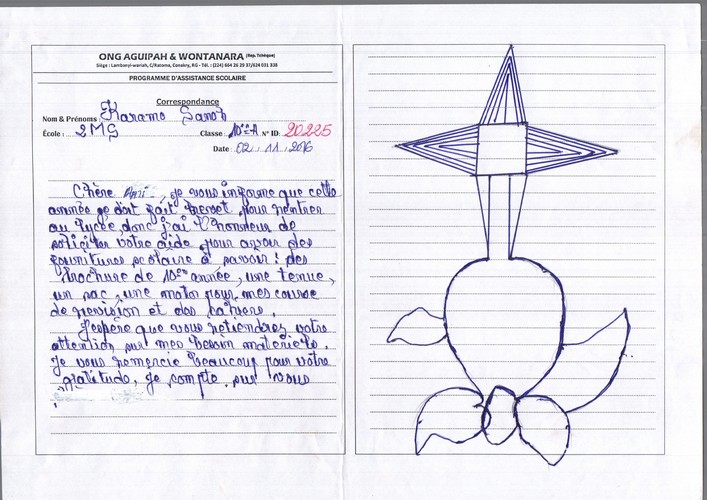 ONG AGUIPAH & WONTANARA (Rep. Tchèque)
Siège : Lambanyi-wariah, C/Ratoma, Conakry, RG - Tél. : (224) 664 26 29 37/624 031 338
PROGRAMME D'ASSISTANCE SCOLAIRE
Correspondance
Nom & Prénoms Karamo Sanoh
École : 2MG Classe : 10ème A N° ID: 20225
Date : 02 . 11 . 2016
Chère Ami, je vous informe que cette
année je doit fait brevet pour rentrer
au lycée donc j'ai l'honneur de
soliciter votre aide pour avoir des
fournitures scolaire à savoir : des
brochure de 10ème année, une tenue,
un sac, une moto pour mes course
de revision et des cahiers.
J'espère que vous retiendrez votre
attention sur mes besoin materiels.
Je vous remercie beaucoup pour votre
gratitude, je compte sur vous